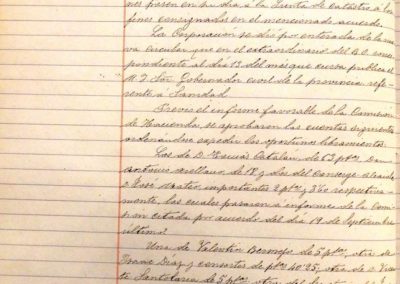 nes pasen en su dia a la Junta de catastro a los
fines consignados en el mencionado acuerdo.
La Corporacion se dió por enterada de la nue
va circular que en el extraordinario del B.O. corres
pondiente al dia 17 del mes que cursa publica el
M. I. Sor. Gobernador civil de la provincia refe
rente á Sanidad.
Previo el informe favorable de la Comision
de Hacienda, se aprobaron las cuentas siguientes
ordenándose expedir los oportunos libramientos.
Las de D. Catalan de 63 ptas,
Antonio Arellano de 18 y dos del Conserje
importantes 2 ptas y 3'60 respectiva
mente, las cuales pasaron a informe de la Comi
sion citada por acuerdo del dia 19 de Septiembre
último.
Una de Valentin Bermejo de 5 ptas, otra de
Diaz y consortes de ptas 40'25, otra de D. Vicen
te Santolaria de 5 ptas, otra de